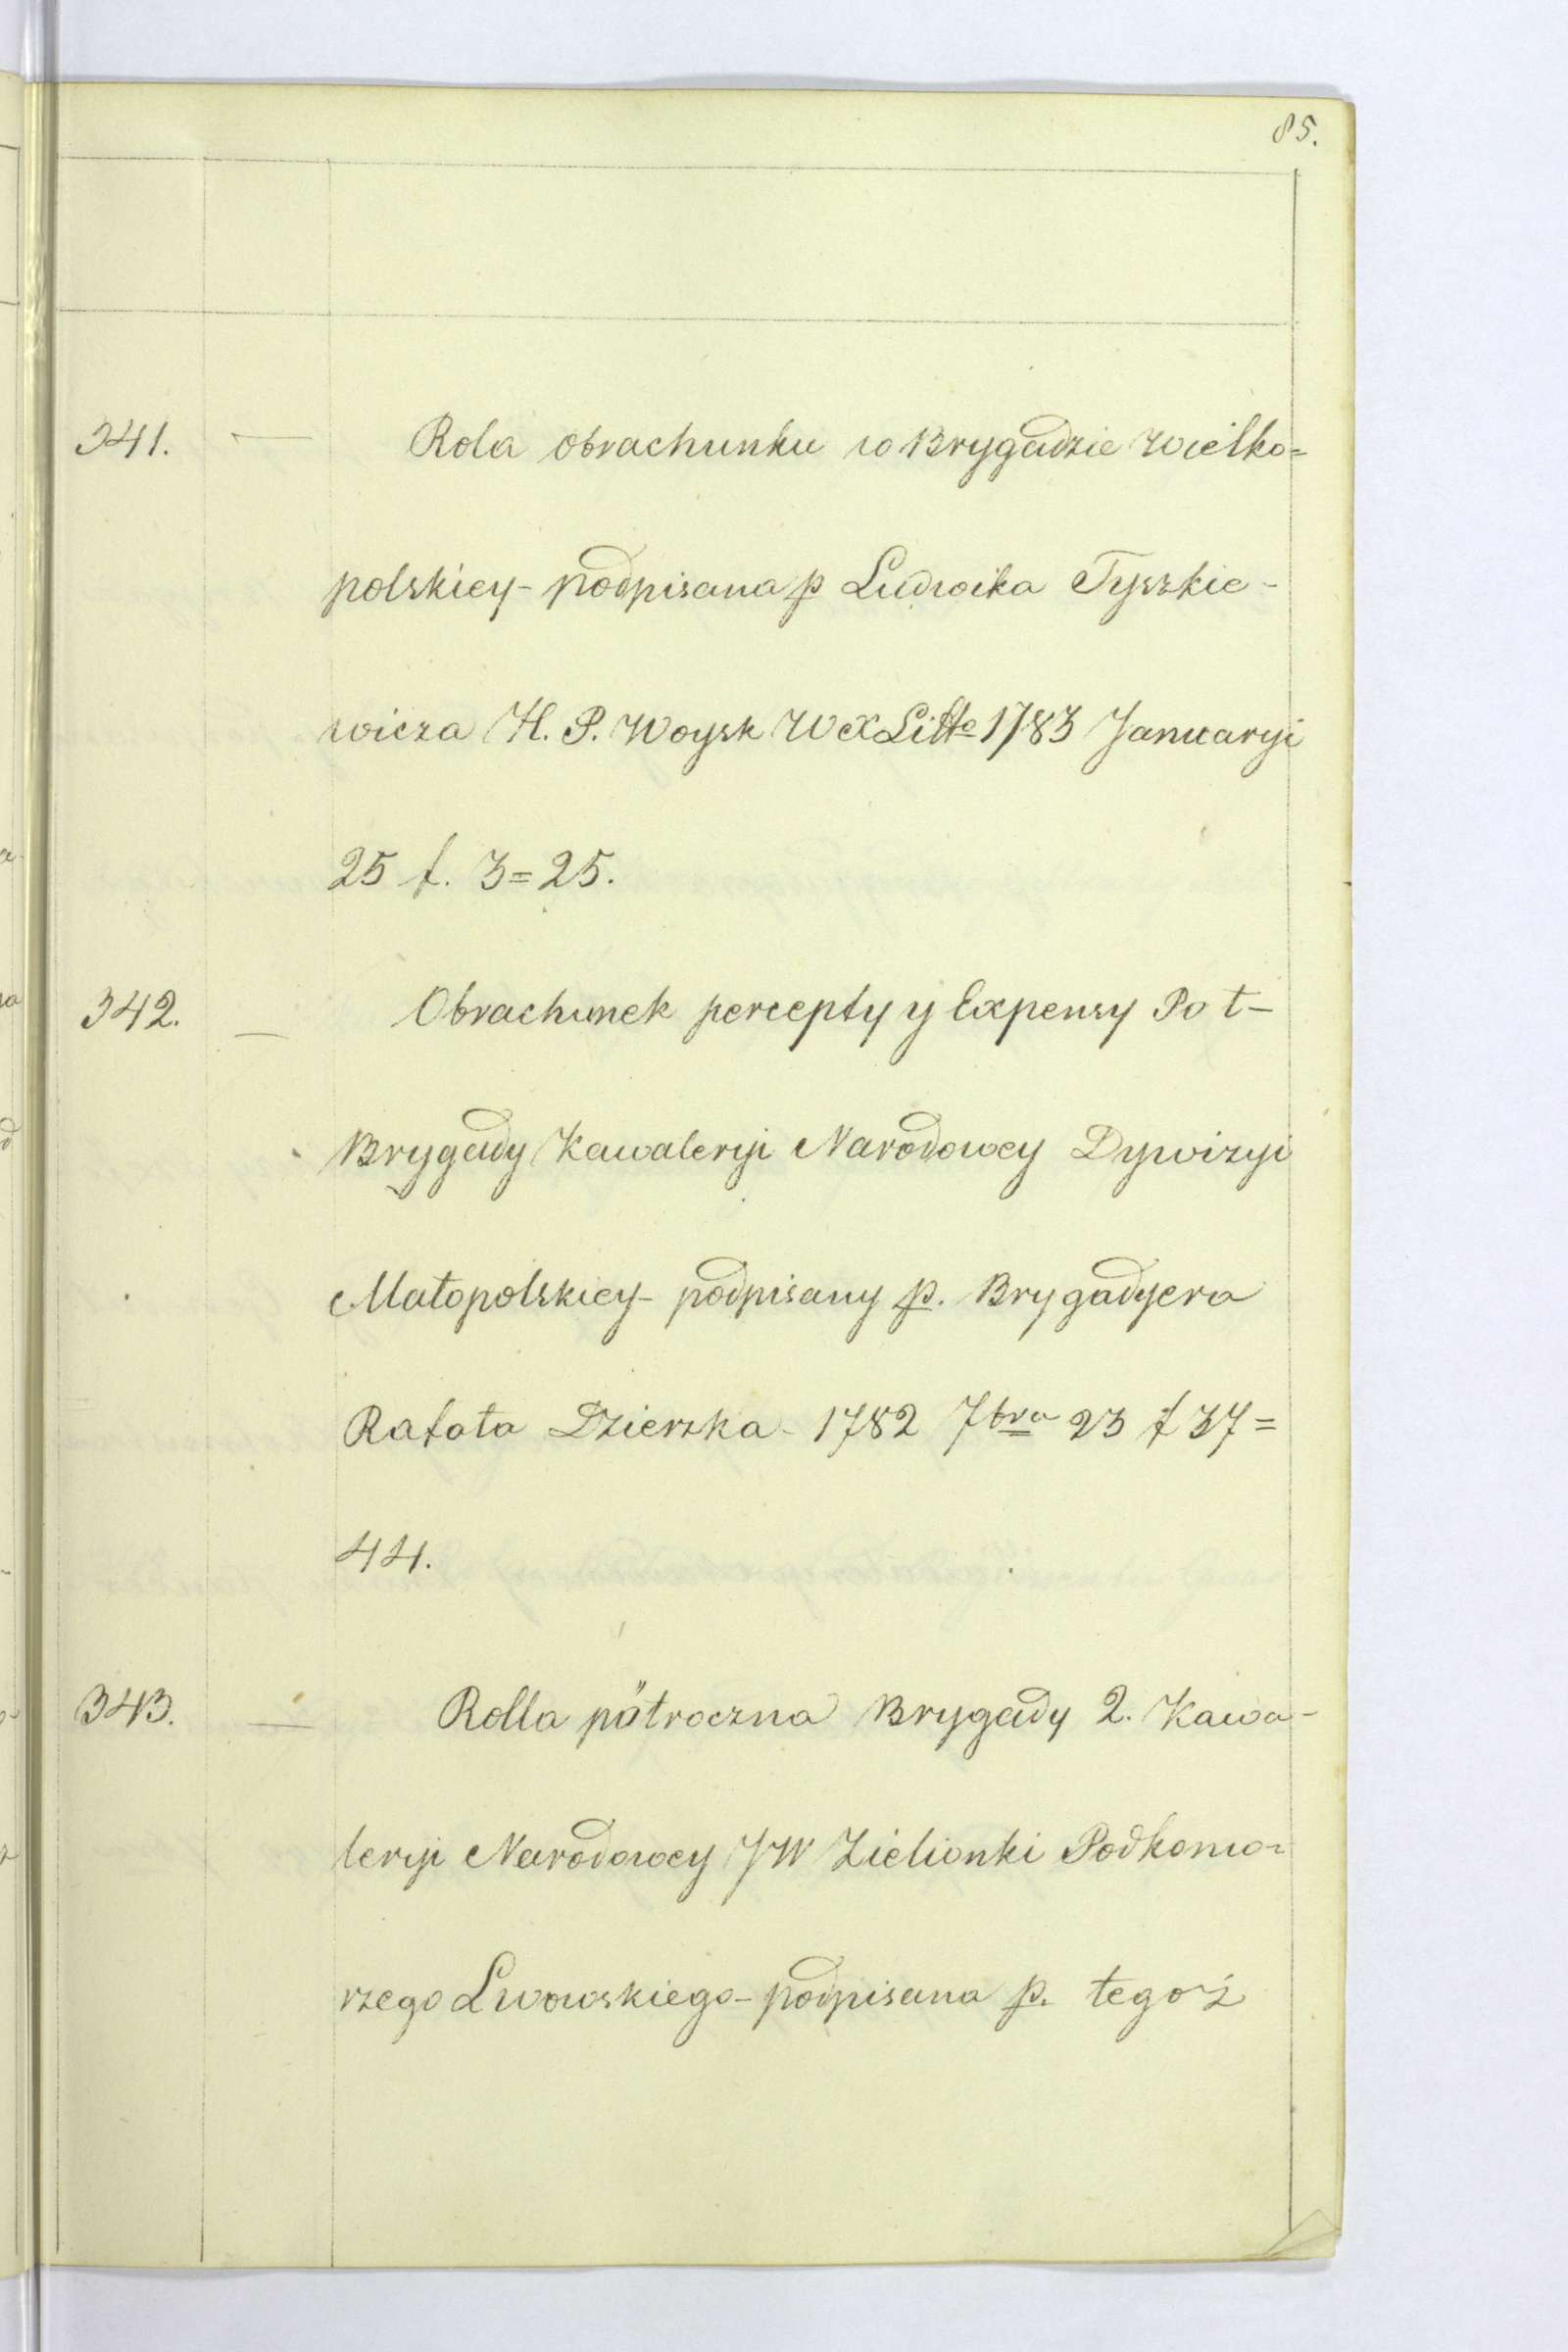 85.
341. — Rola obrachunku w Brygadzie Wielko=
polskiey - podpisana p Ludwika Tyszkie-
wicza H. P. Woysk W X Litto 1783 Januaryi
25 f. 3=25.
342. — Obrachunek percepty y Expensy Po t-
Brygady Kawaleryi Narodowey Dywizyi
Małopolskiey - podpisany p. Brygadyera
Rafała Dzierzka - 1782 7bra 23 f 37=
44.
343. — Rolla półroczna Brygady 2. Kawa-
leryi Narodowey JW Zielionki Podkomo=
rzego Lwowskiego - podpisana p. tegoż